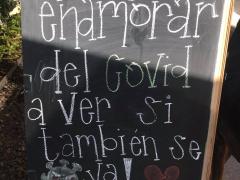 enamorar
del Covid
a ver si
también se
va!